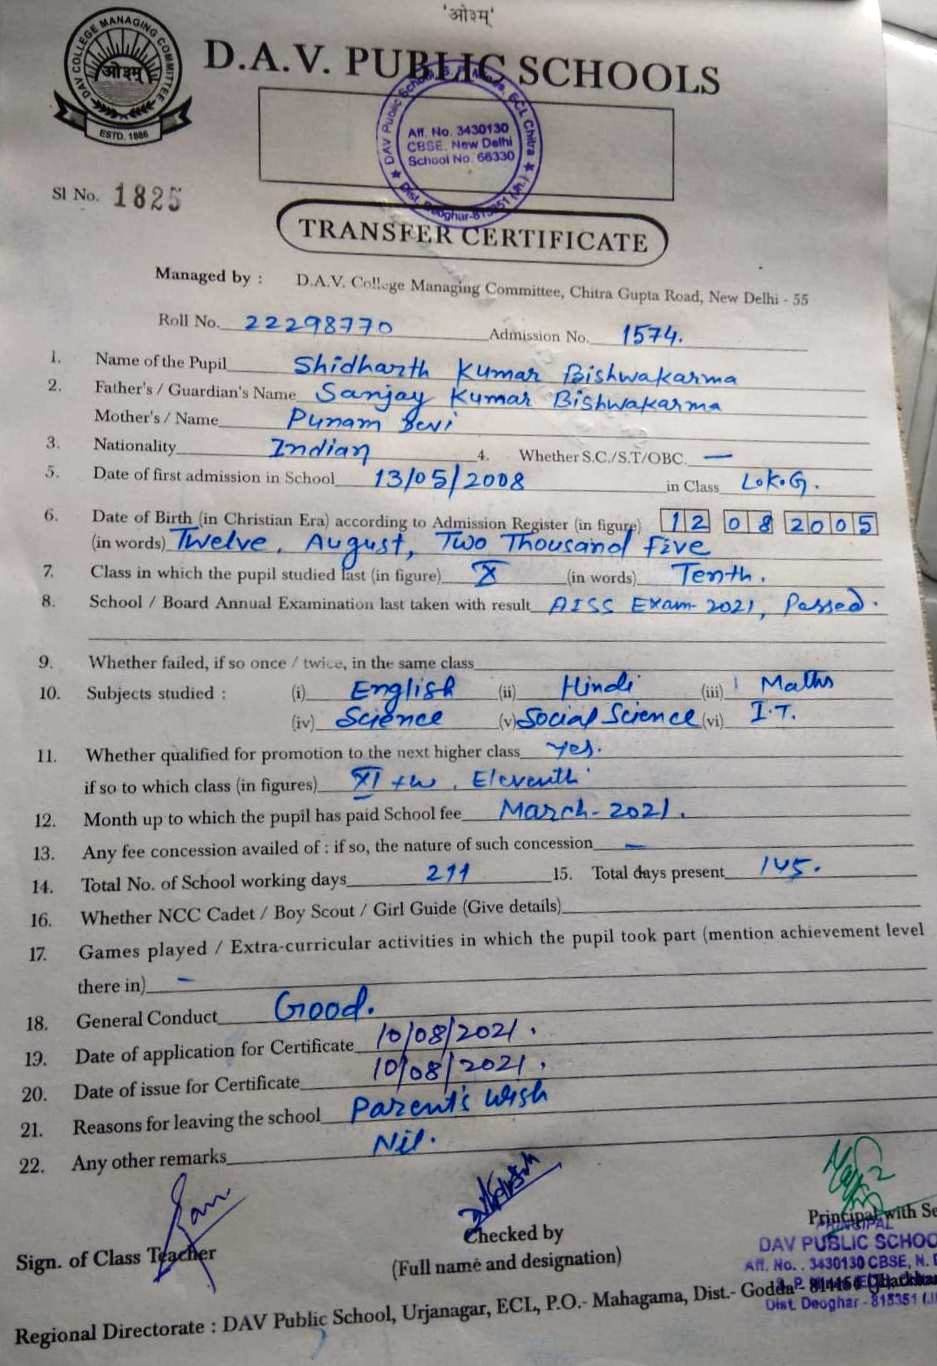 'ओ३म्'
DAV COLLEGE MANAGING COMMITTEE
ओ३म्
ESTD. 1886
D.A.V. PUBLIC SCHOOLS
DAV Public School, S. P. Mines, ECL Chitra
Aff. No. 3430130
CBSE. New Delhi
School No. 66330
Dist. Deoghar-815351 (Jh.)
Sl No. 1825
TRANSFER CERTIFICATE
Managed by : D.A.V. College Managing Committee, Chitra Gupta Road, New Delhi - 55
Roll No. 22298770 Admission No. 1574.
1. Name of the Pupil Shidharth Kumar Bishwakarma
2. Father's / Guardian's Name Sanjay Kumar Bishwakarma
Mother's / Name Punam Devi
3. Nationality Indian 4. Whether S.C./S.T/OBC. —
5. Date of first admission in School 13/05/2008 in Class L.K.G.
6. Date of Birth (in Christian Era) according to Admission Register (in figure) 12 08 2005
(in words) Twelve, August, Two Thousand Five
7. Class in which the pupil studied last (in figure) X (in words) Tenth.
8. School / Board Annual Examination last taken with result AISS Exam-2021, Passed.
9. Whether failed, if so once / twice, in the same class
10. Subjects studied : (i) English (ii) Hindi (iii) Maths
(iv) Science (v) Social Science (vi) I.T.
11. Whether qualified for promotion to the next higher class yes.
if so to which class (in figures) XI th, Eleventh
12. Month up to which the pupil has paid School fee March-2021.
13. Any fee concession availed of : if so, the nature of such concession —
14. Total No. of School working days 211 15. Total days present 145.
16. Whether NCC Cadet / Boy Scout / Girl Guide (Give details)
17. Games played / Extra-curricular activities in which the pupil took part (mention achievement level
there in) -
18. General Conduct Good.
19. Date of application for Certificate 10/08/2021.
20. Date of issue for Certificate 10/08/2021.
21. Reasons for leaving the school Parent's wish
22. Any other remarks Nil.
Sign. of Class Teacher
Checked by
(Full name and designation)
Principal with Se
PRINCIPAL
DAV PUBLIC SCHOO
Aff. No. . 3430130 CBSE, N. D
Dist. Deoghar - 815351 (J
Regional Directorate : DAV Public School, Urjanagar, ECL, P.O.- Mahagama, Dist.- Godda - 814154 (Jharkhan